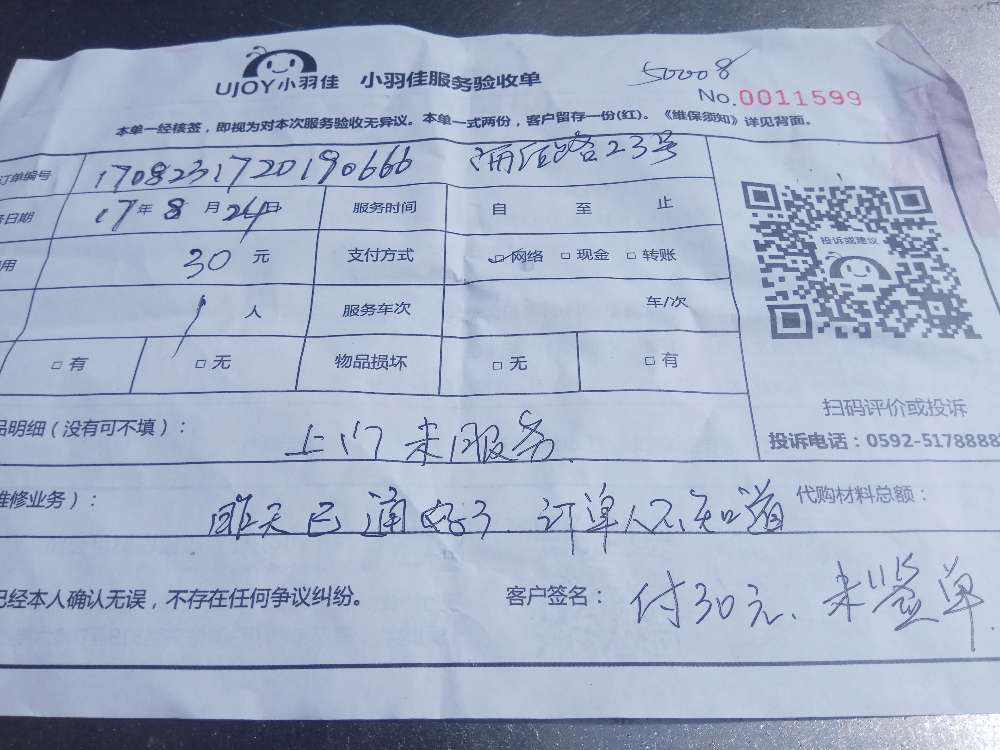 UJOY小羽佳 小羽佳服务验收单
50008
No.0011599
本单一经核签，即视为对本次服务验收无异议。本单一式两份，客户留存一份(红)。《维保须知》详见背面。
订单编号 1708231720190666 23号
务日期 17年8月24日 服务时间 自 至 止
用 30元 支付方式 ☑网络 □现金 □转账
1人 服务车次 车/次
□有 □无 物品损坏 □无 □有
投诉或建议
扫码评价或投诉
投诉电话：0592-5178888
品明细（没有可不填）： 上门未服务
维修业务）： 昨天已通好了、订单人不知道 代购材料总额：
已经本人确认无误，不存在任何争议纠纷。 客户签名： 付30元、未签单